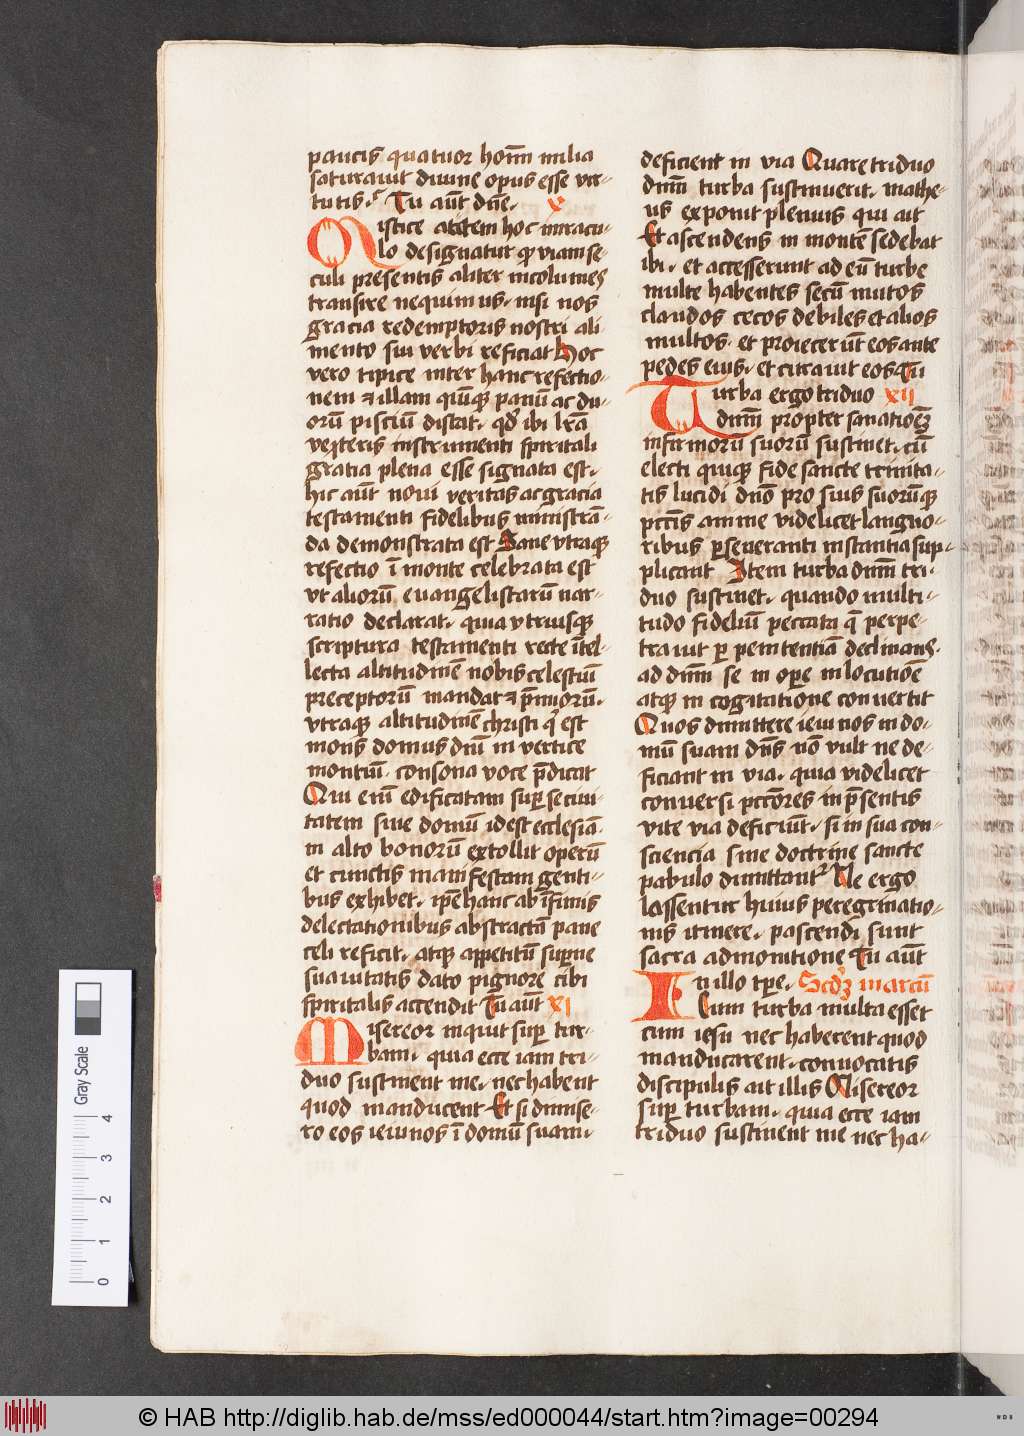 paucis quatuor hom̅ milia
saturauit diuine opus esse vir-
tutis. Tu aut̅ dn̅e. x
Mistice autem hoc miracu-
lo designatur qꝫ viam se-
culi presentis aliter incolumes
transire nequimus. nisi nos
gracia redemptoris nostri ali
mento sui verbi reficiat Hoc
vero tipice inter hanc refectio-
nem ⁊ illam quīqꝫ panū ac du-
orū pisciū distat. qd̓ ibi lr̅a
veteris instrumenti spiritali
gratia plena esse signata est.
hic aut̅ noui veritas ac gracia
testamenti fidelibus ministrā-
da demonstrata est Sane vtraqꝫ
refectio ī monte celebrata est
vt aliorū euangelistarū nar-
ratio declarat. quia vtriusqꝫ
scriptura testamenti recte ītel-
lecta altitudinē nobis celestiū
preceptorū mandat ⁊ p̅miorū.
vtraqꝫ altitudinē christi q̓ est
mons domus dn̅i in vertice
montiū. consona voce p̅dicat
Qui eni̅ edificatam suꝑ se ciui-
tatem siue domū id est ecclesiā.
in alto bonorū extollit operū
et cunctis manifestam genti-
bus exhibet. ip̅e hanc ab īfimis
delectationibus abstractā pane
celi reficit. atqꝫ appetitū suꝑne
suauitatis dato pignore cibi
spiritalis accendit Tu aut̅ xi
Misereor inquit suꝑ tur-
bam. quia ecce iam tri-
duo sustinent me. nec habent
quod manducent Et si dimise-
ro eos ieiunos ī domū suam.
deficient in via Quare triduo
dn̅m turba sustinuerit. mathe-
us exponit plenius qui ait
Et ascendens in montē sedebat
ibi. et accesserunt ad eū turbe
multe habentes secū mutos
claudos cecos debiles et alios
multos. et proiecerūt eos ante
pedes eius. et curauit eos Tu
Turba ergo triduo xii
dn̅m propter sanationeꝫ
infirmorū suorū sustinet. cū
electi quiqꝫ fide sancte trinita-
tis lucidi dn̅o pro suis suorūqꝫ
pctīs anime videlicet languo-
ribus ꝑseueranti instantia sup-
plicant Item turba dn̅m tri-
duo sustinet. quando multi-
tudo fideliū peccata q̄ perpe-
trauit ꝑ penitentiā declinans.
ad dn̅m se in oꝑe in locutiōe
atqꝫ in cogitatione conuertit
Quos dimittere ieiunos in do-
mū suam dn̅s nō vult ne de-
ficiant in via. quia videlicet
conuersi pctōres in p̅sentis
vite via deficiūt. si in sua con-
sciencia sine doctrine sancte
pabulo dimittant᷑ Ne ergo
lassentur huius peregrinatio-
nis itinere. pascendi sunt
sacra admonitione Tu aut̅
In illo tp̅e. Scd̓ꝫ marcū
Cum turba multa esset
cum iesu nec haberent quod
manducarent. conuocatis
discipulis ait illis Misereor
suꝑ turbam. quia ecce iam
triduo sustinent me nec ha-
Gray Scale
4
3
2
1
0
© HAB http://diglib.hab.de/mss/ed000044/start.htm?image=00294